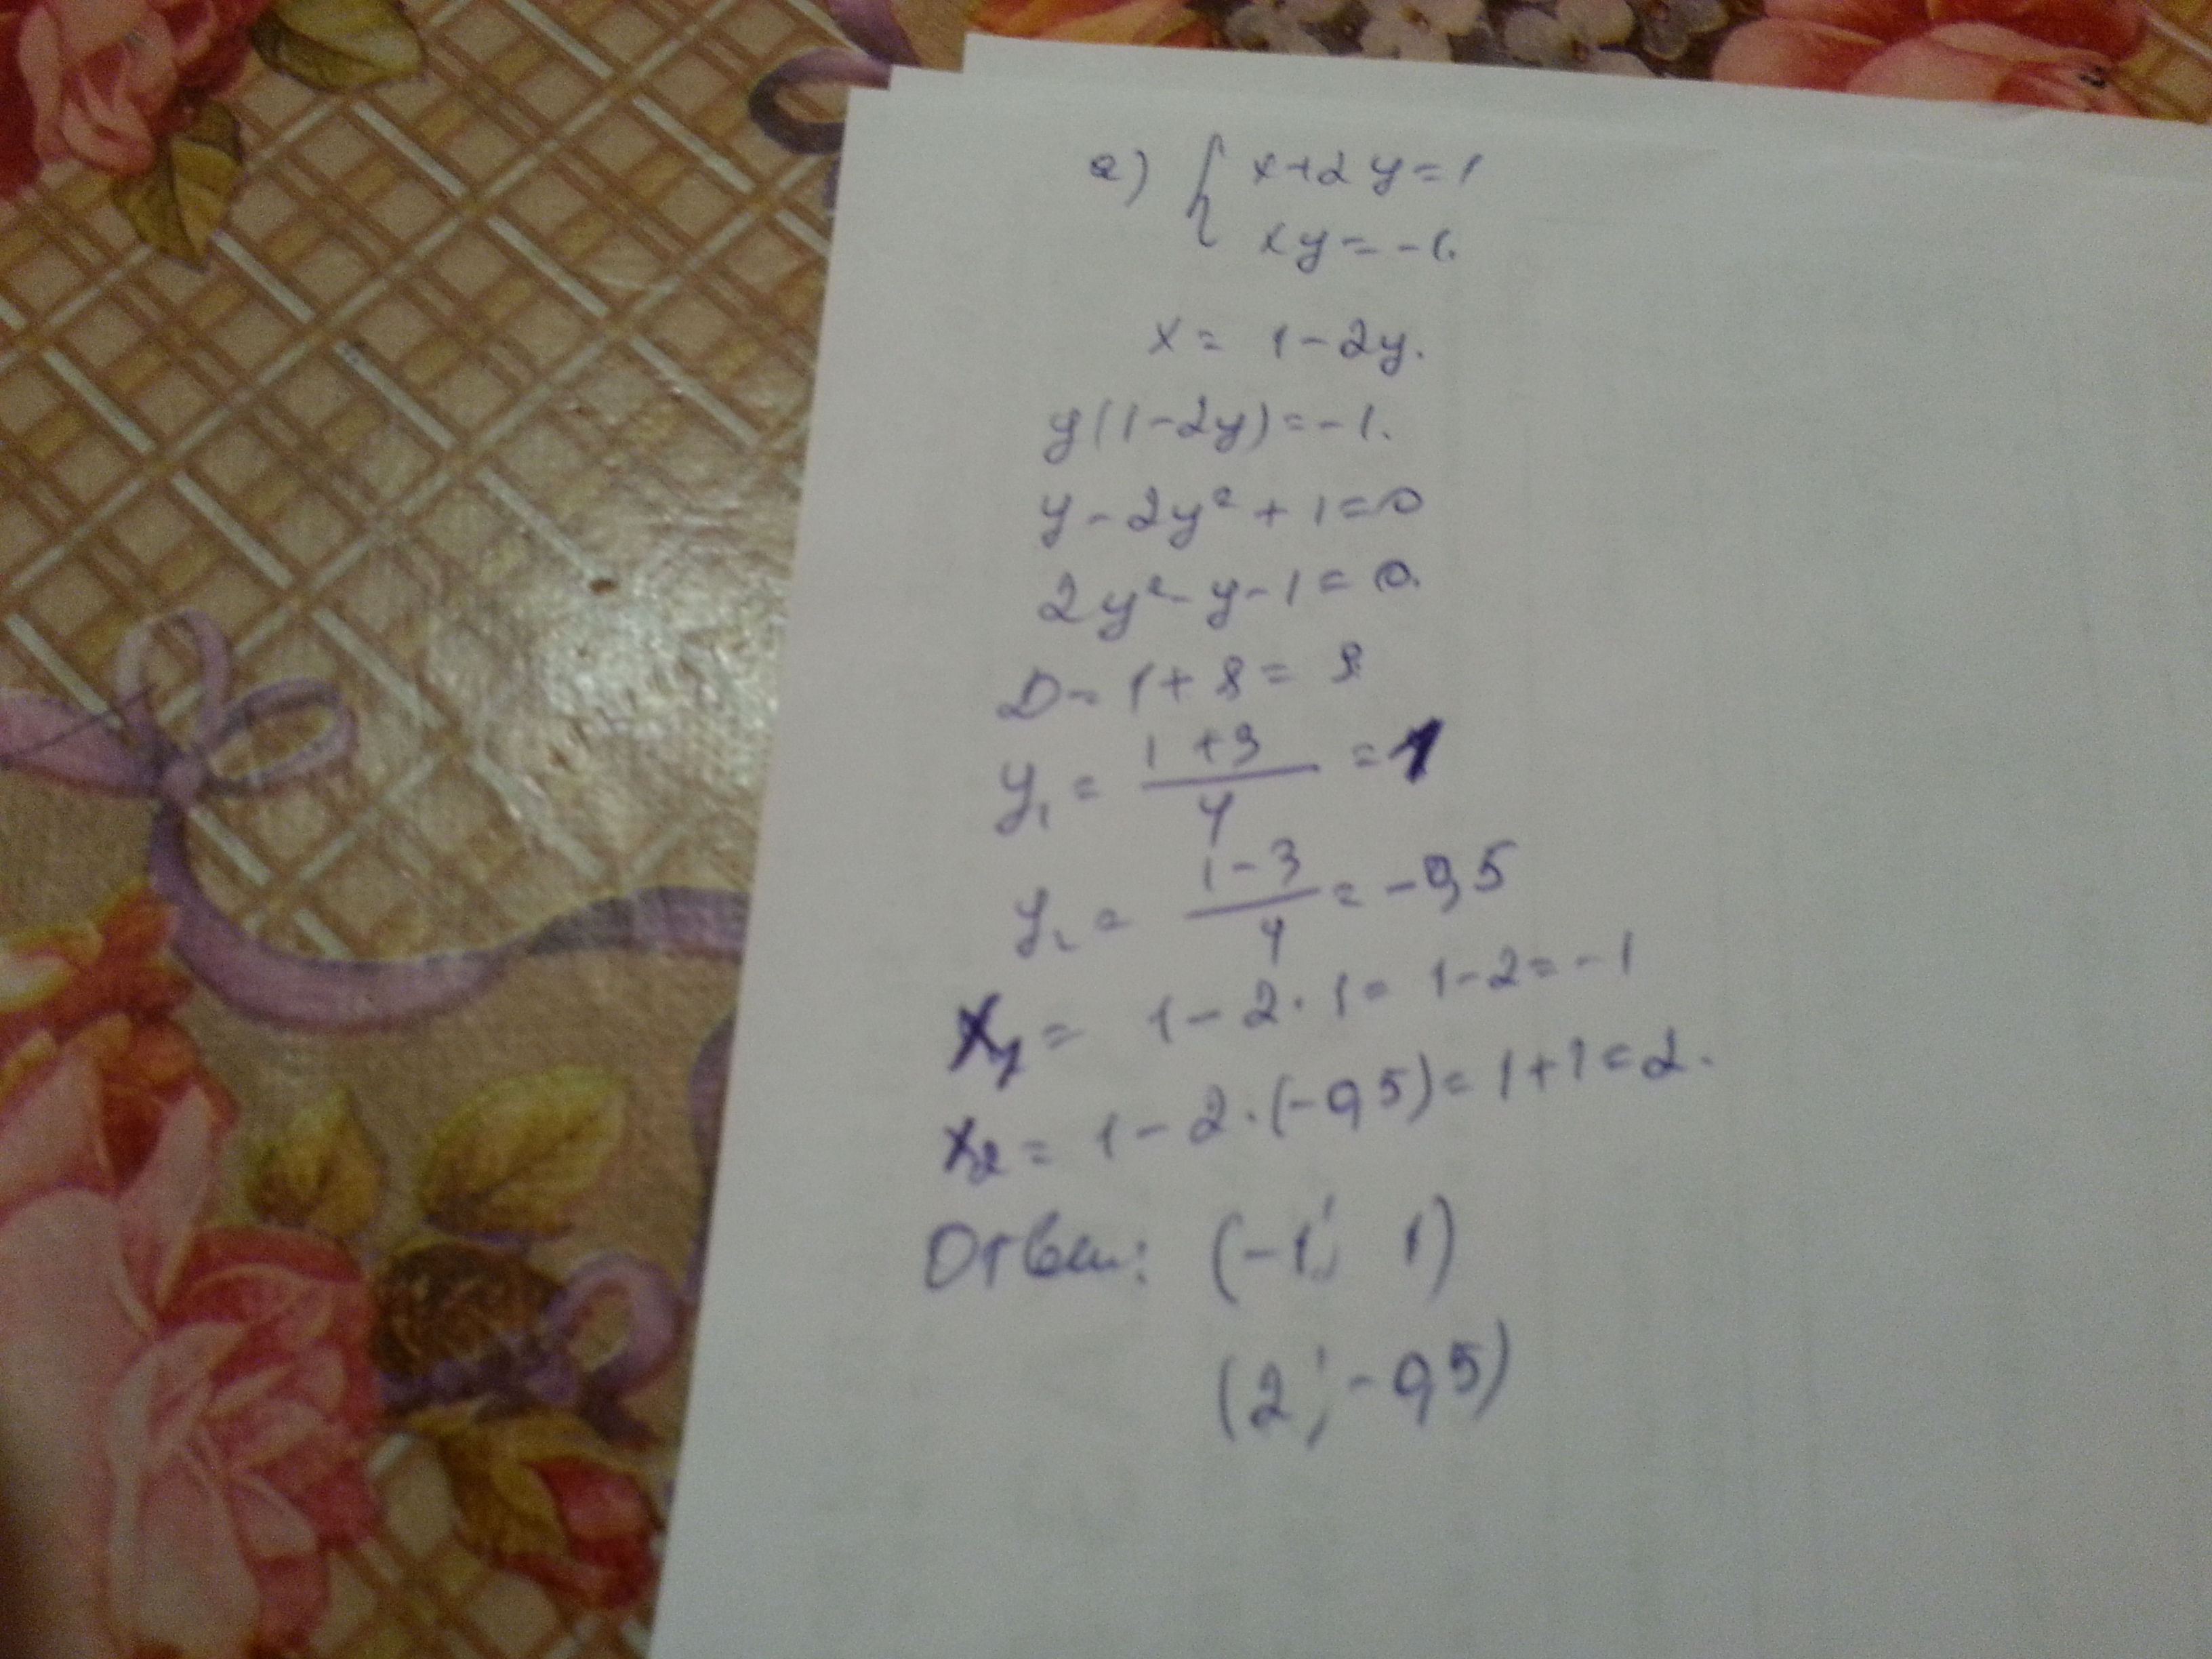 а) { x+2y=1
xy=-1.
x= 1-2y.
y(1-2y)=-1.
y-2y²+1=0
2y²-y-1=0.
D= 1+8= 9.
y₁= (1+3)/4 =1
y₂= (1-3)/4 = -0,5
x₁= 1-2·1= 1-2=-1
x₂= 1-2·(-0,5)= 1+1=2.
Ответ: (-1; 1)
(2; -0,5)